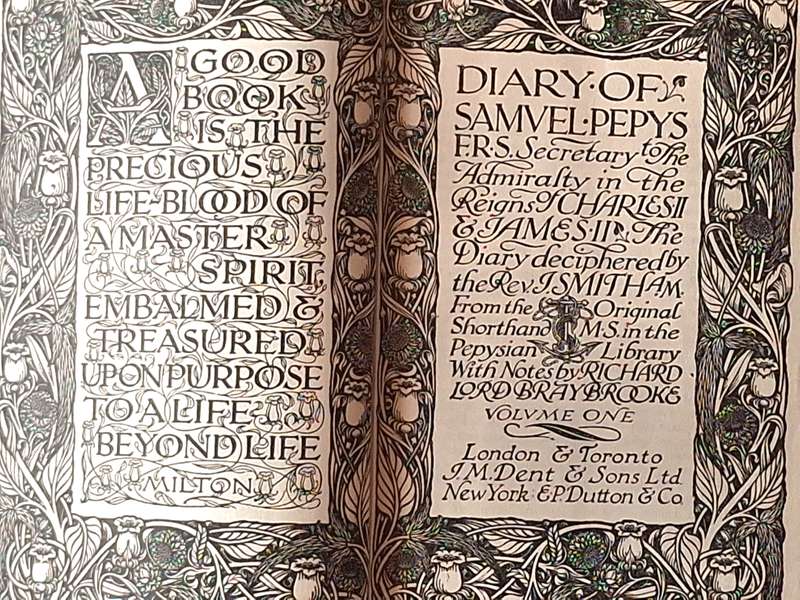 A GOOD
BOOK
IS THE
PRECIOUS
LIFE-BLOOD OF
A MASTER
SPIRIT,
EMBALMED &
TREASURED
UPON PURPOSE
TO A LIFE
BEYOND LIFE
MILTON
DIARY·OF
SAMVEL·PEPYS
F.R.S. Secretary to The
Admiralty in the
Reigns of CHARLES II
& JAMES·II. The
Diary deciphered by
the Rev. J. SMITH A.M.
From the Original
Shorthand M.S. in the
Pepysian Library
With Notes by RICHARD
LORD BRAYBROOKE
VOLVME ONE
London & Toronto
J.M. Dent & Sons Ltd
New York E.P. Dutton & Co.